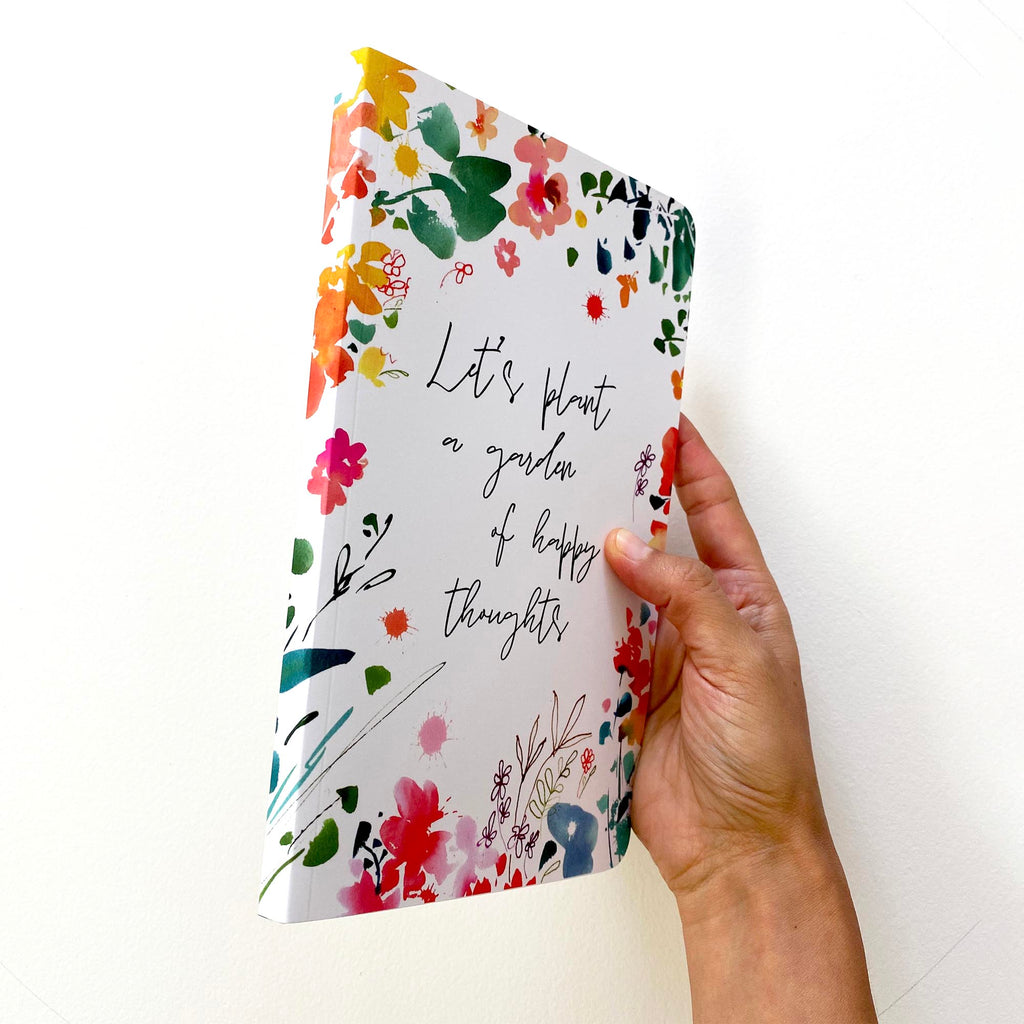 Let's plant
a garden
of happy
thoughts